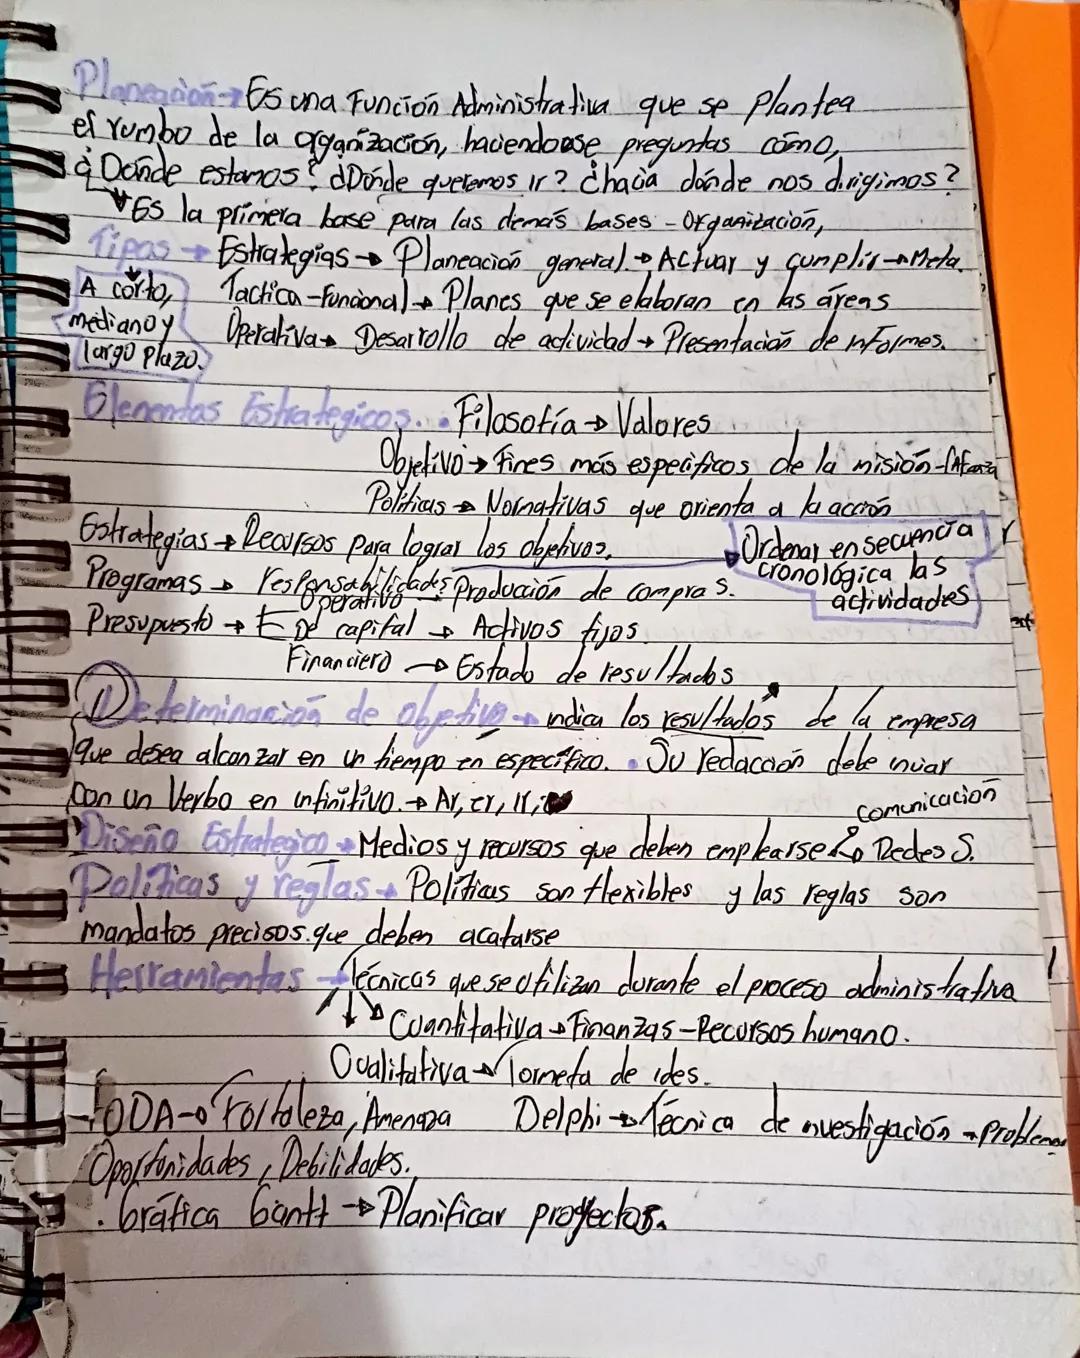 Planeación → Es una Función Administrativa que se plantea
el rumbo de la organización, haciendose preguntas cómo,
¿Dónde estamos? ¿Dónde queremos ir? ¿hacia dónde nos dirigimos?
Es la primera base para las demás bases - Organización,
Tipos → Estrategias → Planeación general. → Actuar y cumplir → Meta.
A corto,
mediano y
largo plazo.
Tactica - funcional → Planes que se elaboran en las áreas
Operativa → Desarrollo de actividad → Presentación de informes.
Elementos Estrategicos. . Filosofía → Valores
Objetivo → Fines más especificos de la misión -
Politicas → Normativas que orienta a la acción
Estrategias → Recursos para lograr los objetivos.
Ordenar en secuencia
cronológica las
actividades
Programas → responsabilidades
Operativo → Producción de compras.
Presupuesto → De capital → Activos fijos
Financiero → Estado de resultados
Determinación de objetivo → indica los resultados de la empresa
que desea alcanzar en un tiempo en específico. • Su redacción debe iniciar
con un Verbo en infinitivo. → Ar, er, ir,
comunicación
Diseño Estrategico → Medios y recursos que deben emplearse → Redes S.
Políticas y reglas → Políticas son flexibles y las reglas son
mandatos precisos. que deben acatarse
Herramientas → Técnicas que se utilizan durante el proceso administrativa
Cuantitativa → Finanzas - Recursos humano.
Cualitativa → Tormeta de ides.
FODA → Fortaleza, Amenaza
Oportunidades, Debilidades.
Delphi → Técnica de investigación → Problemas
. Gráfica Gantt → Planificar proyectos.